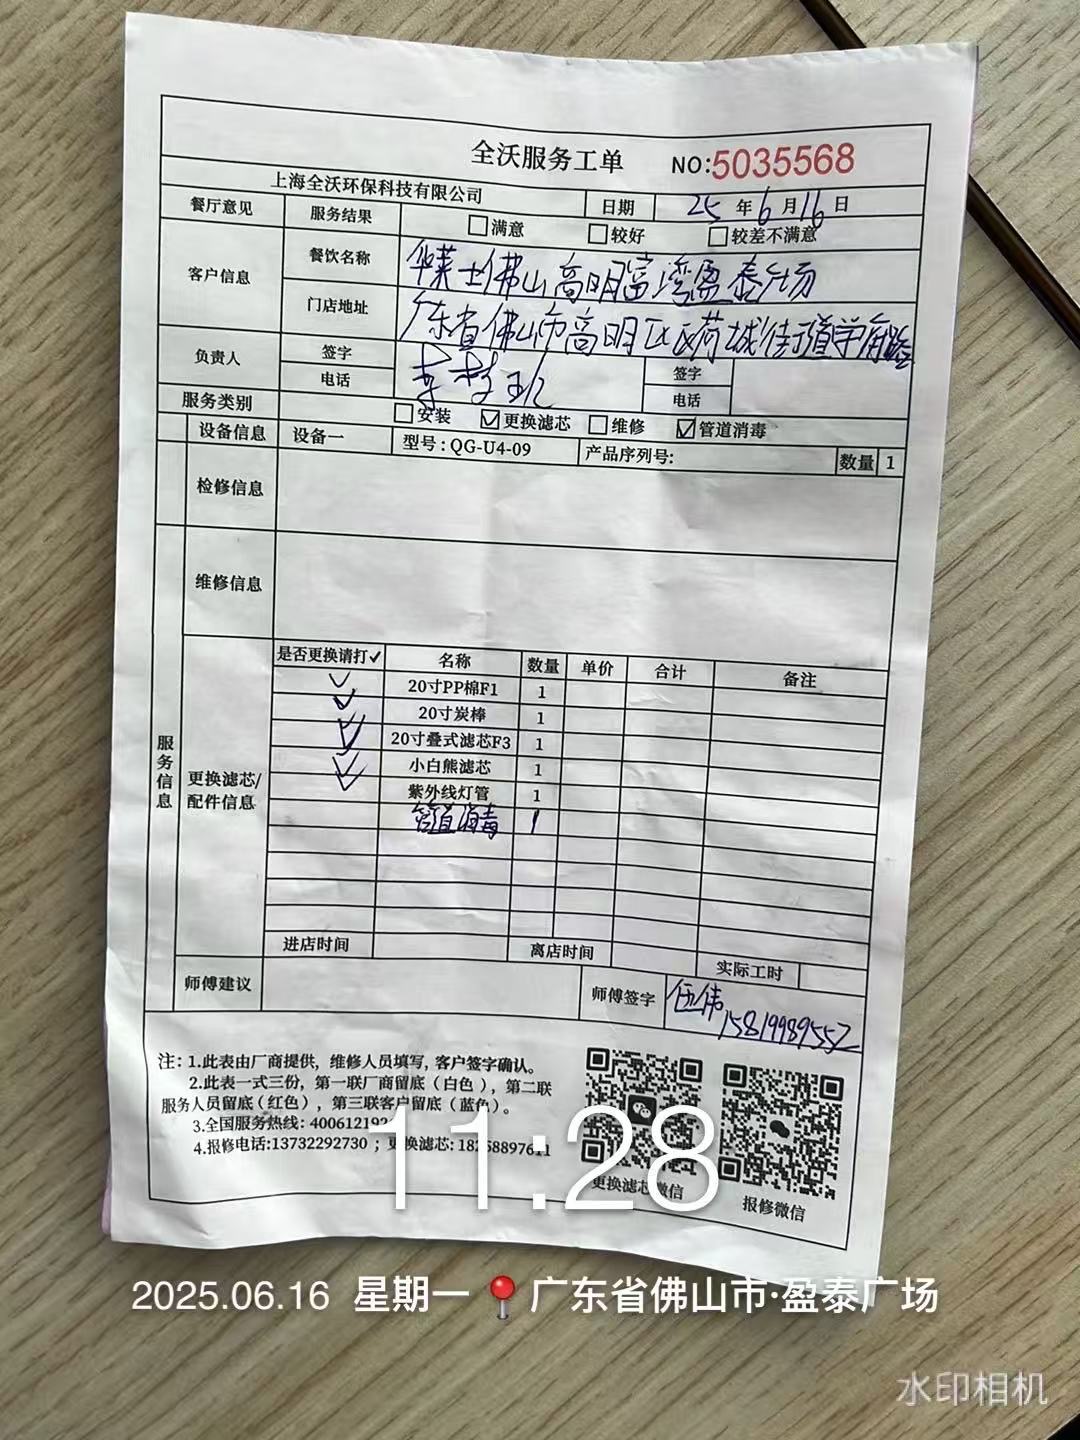 全沃服务工单 NO:5035568
上海全沃环保科技有限公司 日期 25 年 6 月 16 日
餐厅意见 服务结果 满意 较好 较差不满意
客户信息 餐饮名称 华莱士佛山高明富湾盈泰广场
门店地址 广东省佛山市高明区荷城街道学府路
负责人 签字 签字
电话 电话
服务类别 安装 更换滤芯 维修 管道消毒
设备信息 设备一 型号：QG-U4-09 产品序列号: 数量 1
检修信息
维修信息
是否更换请打✓ 名称 数量 单价 合计 备注
✓ 20寸PP棉F1 1
✓ 20寸炭棒 1
✓ 20寸叠式滤芯F3 1
✓ 小白熊滤芯 1
✓ 紫外线灯管 1
管道消毒 1
服务信息
更换滤芯/
配件信息
进店时间 离店时间 实际工时
师傅建议 师傅签字 伍伟
15819989552
注：1.此表由厂商提供，维修人员填写，客户签字确认。
2.此表一式三份，第一联厂商留底（白色），第二联
服务人员留底（红色），第三联客户留底（蓝色）。
3.全国服务热线：
4.报修电话:13732292730 ；更换滤芯:
更换滤芯微信
报修微信
11:28
2025.06.16 星期一 广东省佛山市·盈泰广场
水印相机